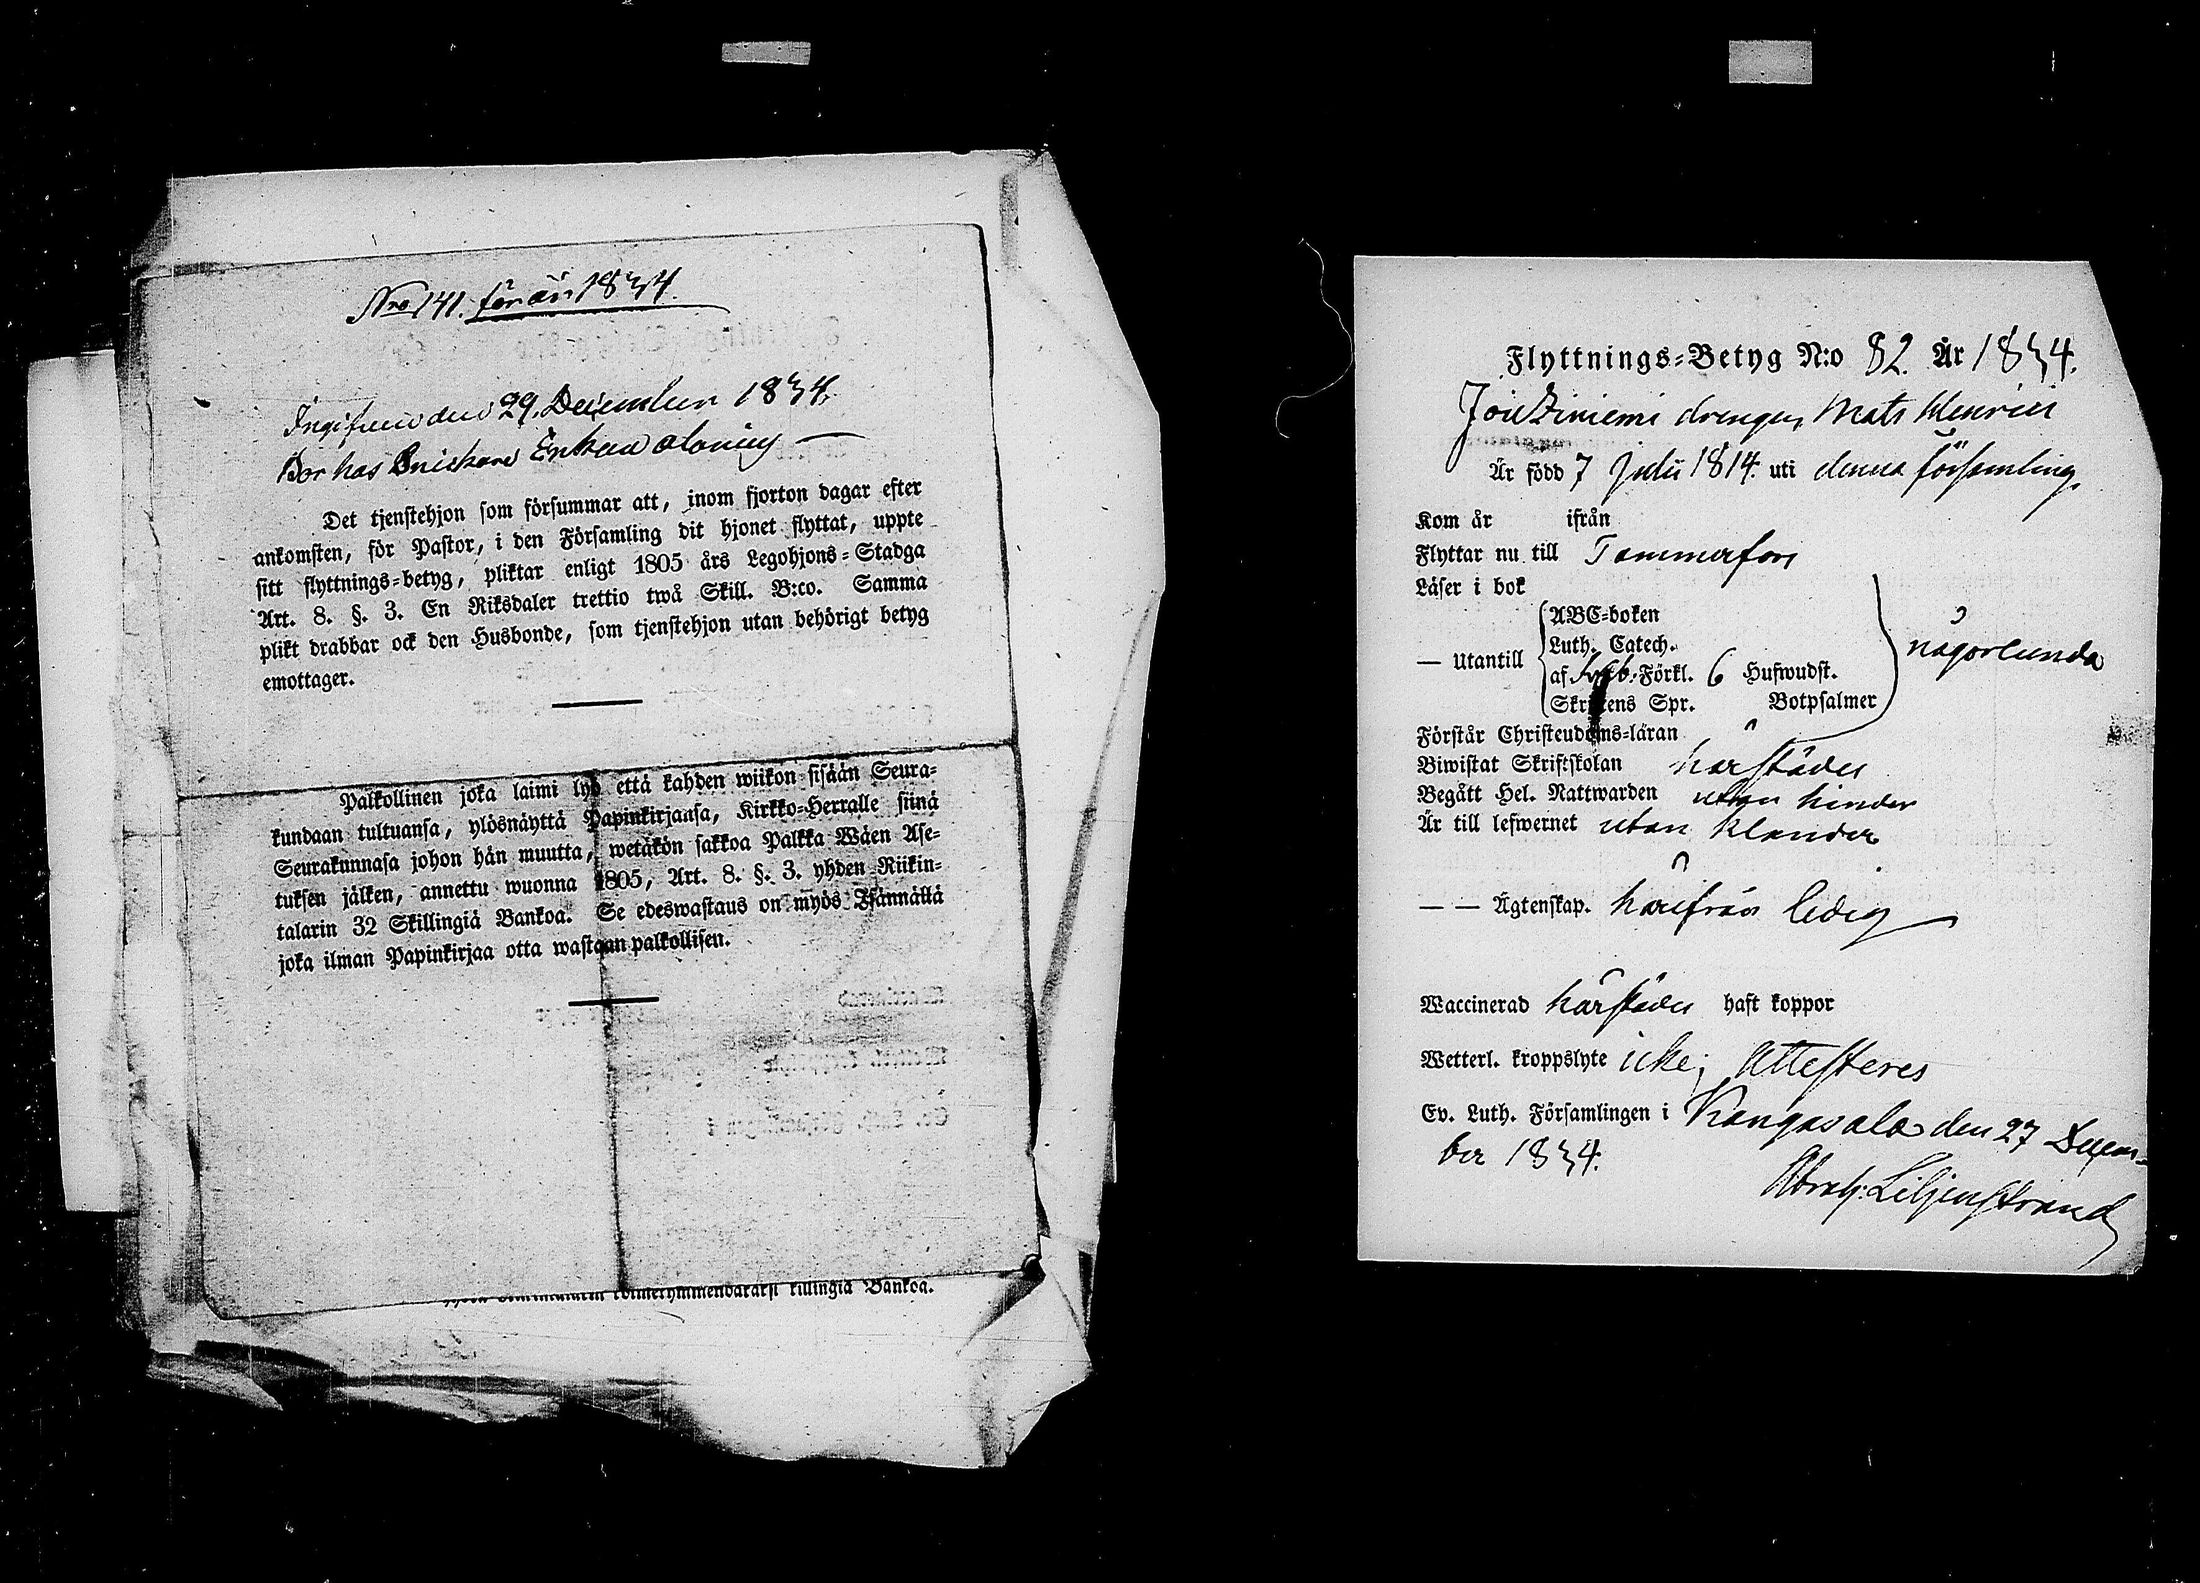 Nro 141. för år 1834.
Ingifven den 29. December 1834.
Bor hos Snickare Enkan
Det tjenstehjon som försummar att, inom fjorton dagar efter
ankomsten, för Pastor, i den Församling dit hjonet flyttat, uppte
sitt flyttnings=betyg, pliktar enligt 1805 års Legohjons=Stadga
Art. 8. §. 3. En Riksdaler trettio twå Skill. B:co. Samma
plikt drabbar ock den Husbonde, som tjenstehjon utan behörigt betyg
emottager.
Palkollinen joka laimi lyö että kahden wiikon sisään Seura=
kundaan tultuansa, ylösnäyttä Papinkirjansa, Kirkko=Herralle siinä
Seurakunnasa johon hän muutta, wetäkön sakkoa Palkka Wäen Ase=
tuksen jälken, annettu wuonna 1805, Art. 8. §. 3. yhden Riikin=
talarin 32 Skillingiä Bankoa. Se edeswastaus on myös Isännällä
joka ilman Papinkirjaa otta wastaan palkollisen.
killingiä Bankoa.
Flyttnings=Betyg N:o 82. År 1834.
drengen Mats Henrici
Är född 7 Julii 1814. uti denna församling
Kom år ifrån
Flyttar nu till Tammerfors
Läser i bok
— Utantill ABC=boken
Luth. Catech.
af Förkl. 6 Hufwudst.
Skriftens Spr. Botpsalmer
någorlunda
Förstår Christendoms=läran
Biwistat Skriftskolan härstädes
Begått Hel. Nattwarden utan hinder
Är till lefwernet utan klander
— — Ägtenskap. härifrån ledig
Waccinerad härstädes haft koppor
Wetterl. kroppslyte icke; Attesteres
Ev. Luth. Församlingen i Kangasala den 27 Decem=
ber 1834.
Abrah: Liljenstrand